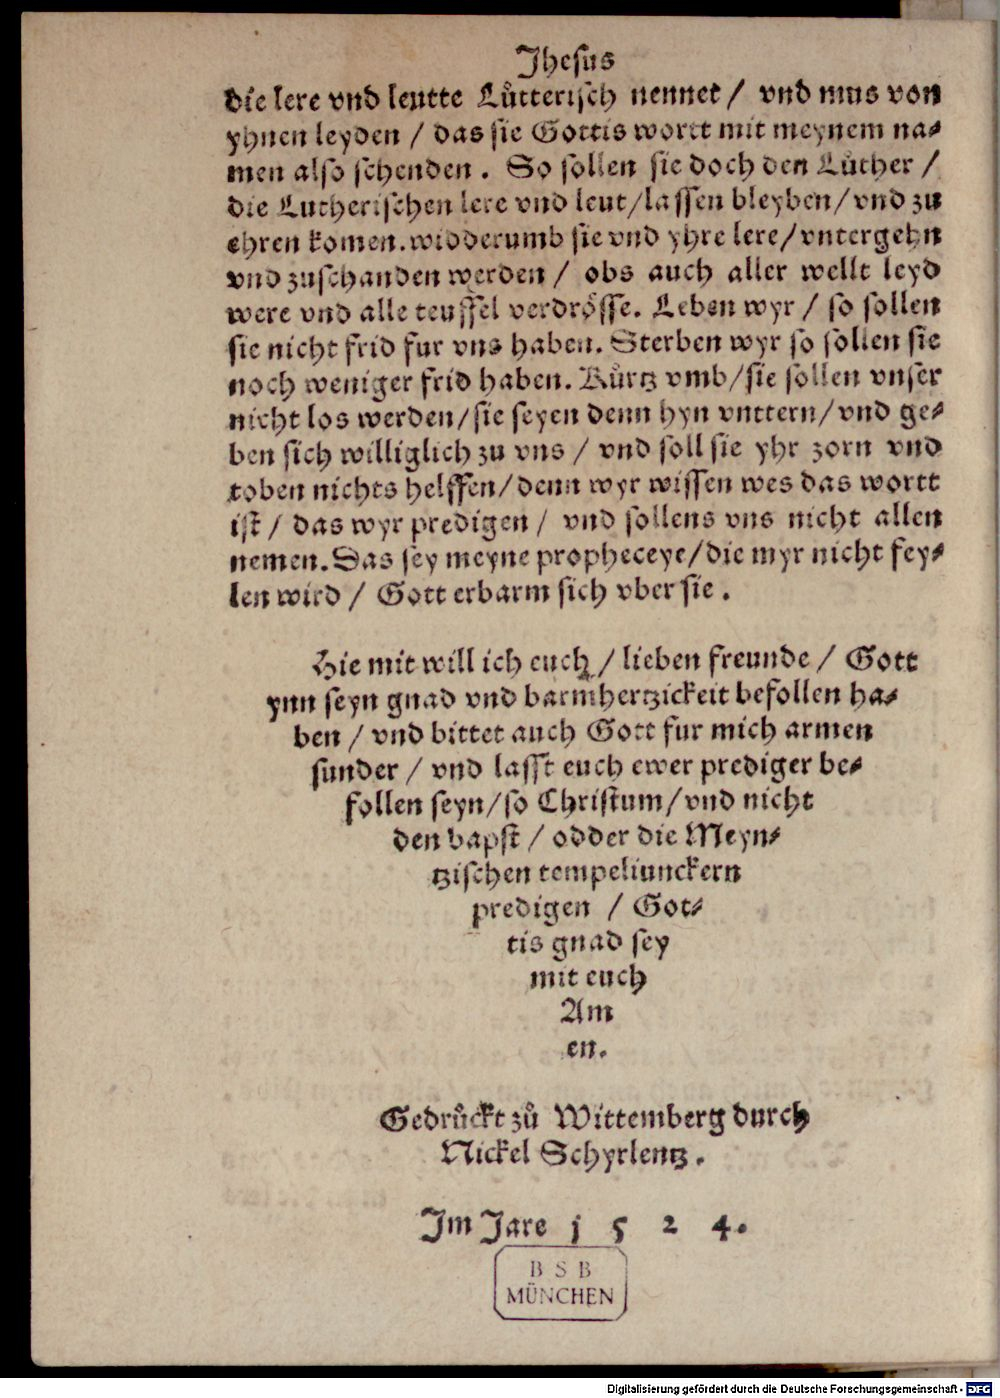 Jhesus
die lere vnd leutte Lůtterisch nennet / vnd mus von
yhnen leyden / das sie Gottis wortt mit meynem na⸗
men also schenden . So sollen sie doch den Luther /
die Lutherischen lere vnd leut/lassen bleyben/vnd zu
ehren komen.widderumb sie vnd yhre lere/vntergehn
vnd zuschanden werden / obs auch aller wellt leyd
were vnd alle teuffel verdrösse. Leben wyr / so sollen
sie nicht frid fur vns haben. Sterben wyr so sollen sie
noch weniger frid haben. Kůrtz vmb/sie sollen vnser
nicht los werden/sie seyen denn hyn vnttern/vnd ge⸗
ben sich williglich zu vns / vnd soll sie yhr zorn vnd
toben nichts helffen/denn wyr wissen wes das wortt
ist / das wyr predigen / vnd sollens vns nicht allen
nemen.Das sey meyne propheceye/die myr nicht fey⸗
len wird / Gott erbarm sich vber sie .
Hie mit will ich euch / lieben freunde / Gott
ynn seyn gnad vnd barmhertzickeit befollen ha⸗
ben / vnd bittet auch Gott fur mich armen
sunder / vnd lasst euch ewer prediger be⸗
follen seyn/so Christum/vnd nicht
den bapst / odder die Meyn⸗
tzischen tempeliunckern
predigen / Got⸗
tis gnad sey
mit euch
Am
en.
Gedrůckt zů Wittemberg durch
Nickel Schyrlentz .
Im Jare j 5 2 4.
B S B
MÜNCHEN
Digitalisierung gefördert durch die Deutsche Forschungsgemeinschaft - DFG